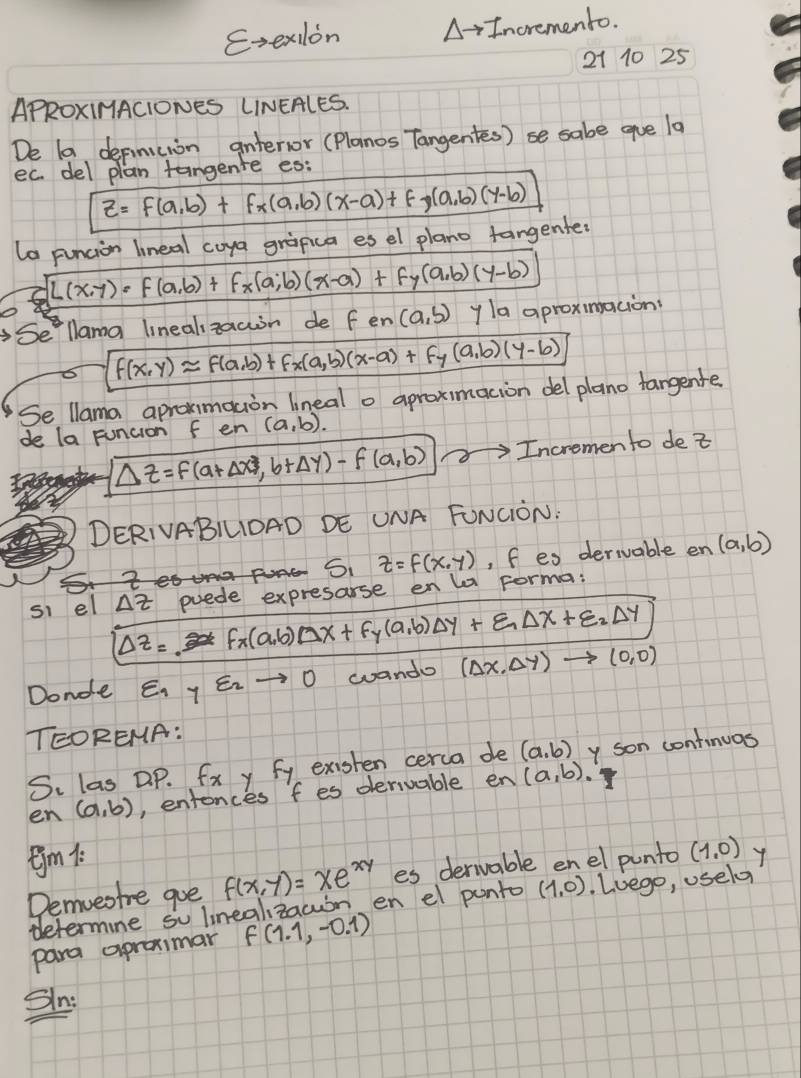 Ɛ→exilón Δ→Incremento.
21 10 25
APROXIMACIONES LINEALES.
De la definición anterior (Planos Tangentes) se sabe que la
ec del plan tangente es:
z = f(a,b) + fx(a,b)(x-a) + fy(a,b)(y-b)
La función lineal cuya gráfica es el plano tangente:
L(x,y) = f(a,b) + fx(a,b)(x-a) + fy(a,b)(y-b)
Se llama linealización de f en (a,b) y la aproximación:
f(x,y) ≈ f(a,b) + fx(a,b)(x-a) + fy(a,b)(y-b)
Se llama aproximación lineal o aproximación del plano tangente
de la función f en (a,b).
Δz = f(a+Δx, b+Δy) - f(a,b) → Incremento de z
DERIVABILIDAD DE UNA FUNCIÓN:
Si z es una func Si z = f(x,y), f es derivable en (a,b)
si el Δz puede expresarse en la forma:
Δz = fx(a,b)Δx + fy(a,b)Δy + Ɛ₁Δx + Ɛ₂Δy
Donde Ɛ₁ y Ɛ₂ → 0 cuando (Δx,Δy) → (0,0)
TEOREMA:
Si las DP. fx y fy existen cerca de (a,b) y son continuas
en (a,b), entonces f es derivable en (a,b).
Ejm 1:
Demuestre que f(x,y) = xe^xy es derivable en el punto (1,0) y
determine su linealización en el punto (1,0). Luego, usela
para aproximar f(1.1, -0.1)
Sln: